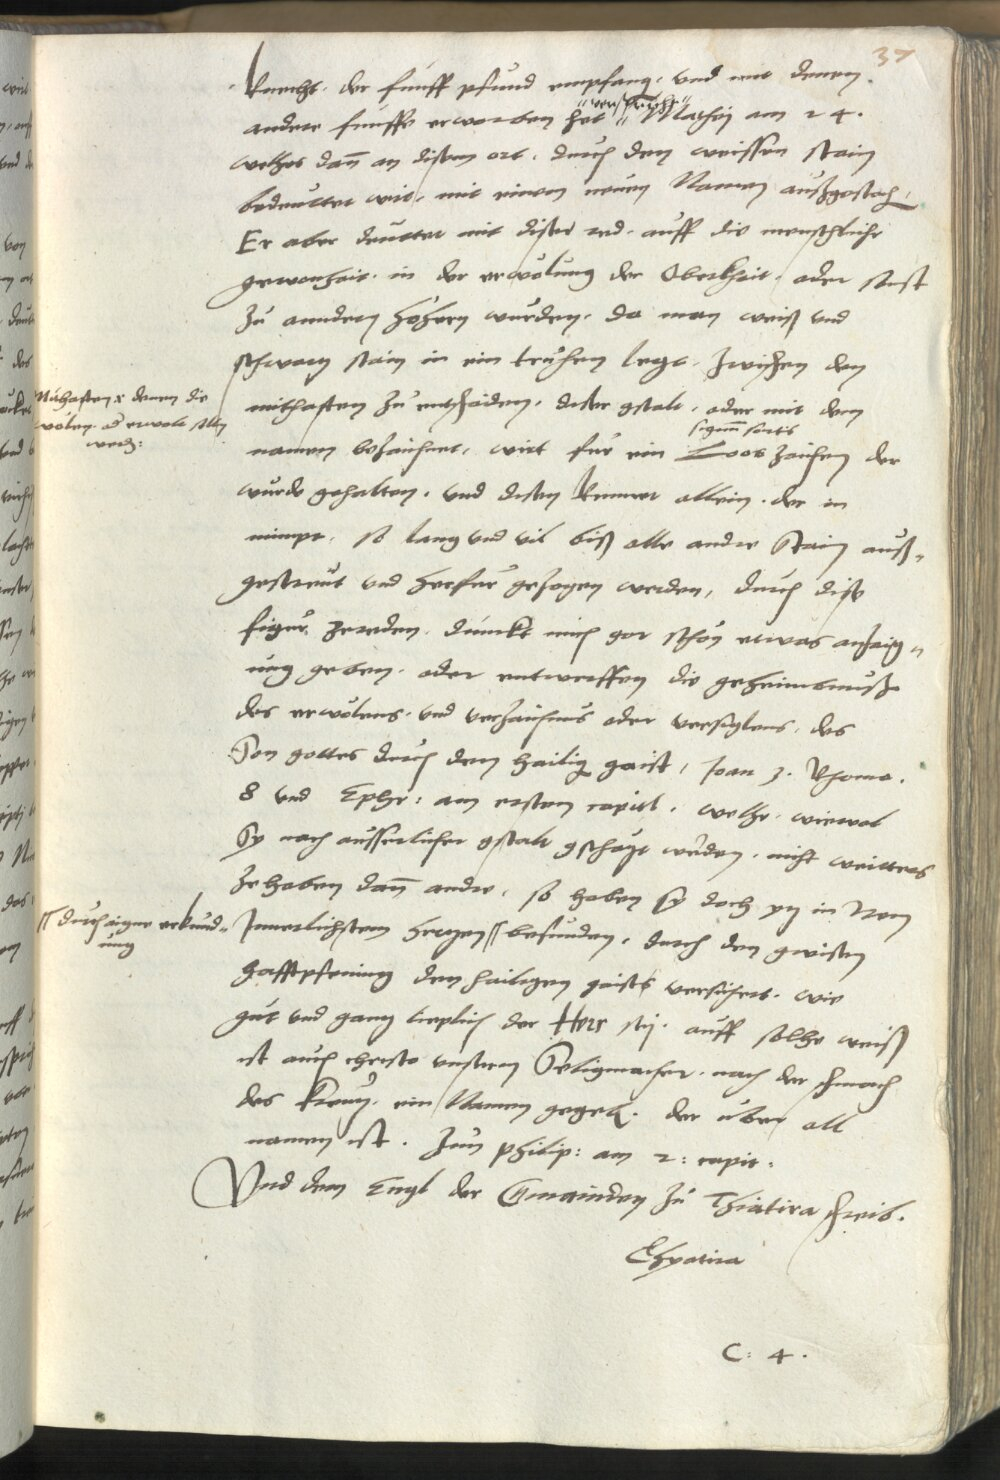 37
knecht. der fünff pfund empfang. und mit denen.
andere fünffe erworben het Mathej am 24.
welhes dañ an disem ort. durch den weissen stain
bedeuttet wirt. mit einem neuen Namen außgestoch.
Er aber deuttet mit diser red. auff die menschlich
gewonhait. in der erwölung der Oberkhait. oder sonst
zu anndern höhern wurden. da man weiß und
schwartz stain in ein truhen legt. zwischen den
mithafften zu entschaiden. diser gstalt. oder mit dem
signum sortis
namen bezaichnet. wirt für ein Loos zaichen der
würde gehalten. und disen kennet allein. der in
nimpt. so lang und vil biß alle andre Stain auß-
gestreut und herfür gezogen werden, durch dise
figur zereden. dünckt mich gar schön etwas anzaig-
ung geben. oder entwerffen die gehaimbnuß
des erwölens. und verzaichnus oder versiglens. des
Son gottes durch den hailig gaist, Joan 3. Rhoma.
8 und Ephe: am ersten capitl. welhe. wiewol
Sy nach äusserlicher gstalt gschätzt werden. nicht weitters
zehaben dañ andre. so haben sy doch yn in Irem
Innerlichstem hertzen befunden. durch den gwisen
hafftpfening den hailigen gaists versichert. wie
gut und gantz lieplich der Herr sey. auff solhe weiß
ist auch christo unserm Seligmacher. nach der schmach
des Kreutz. ein Namen gegeb. der über all
namen ist. Zun philip: am 2: capit.
Und dem Engl der Gmainden zu Thiatira schreib.
Thyatira
C: 4.
Mithafften x denen die
wölen. oder erwölt sollen
werd:
durch aigne erkund-
ung